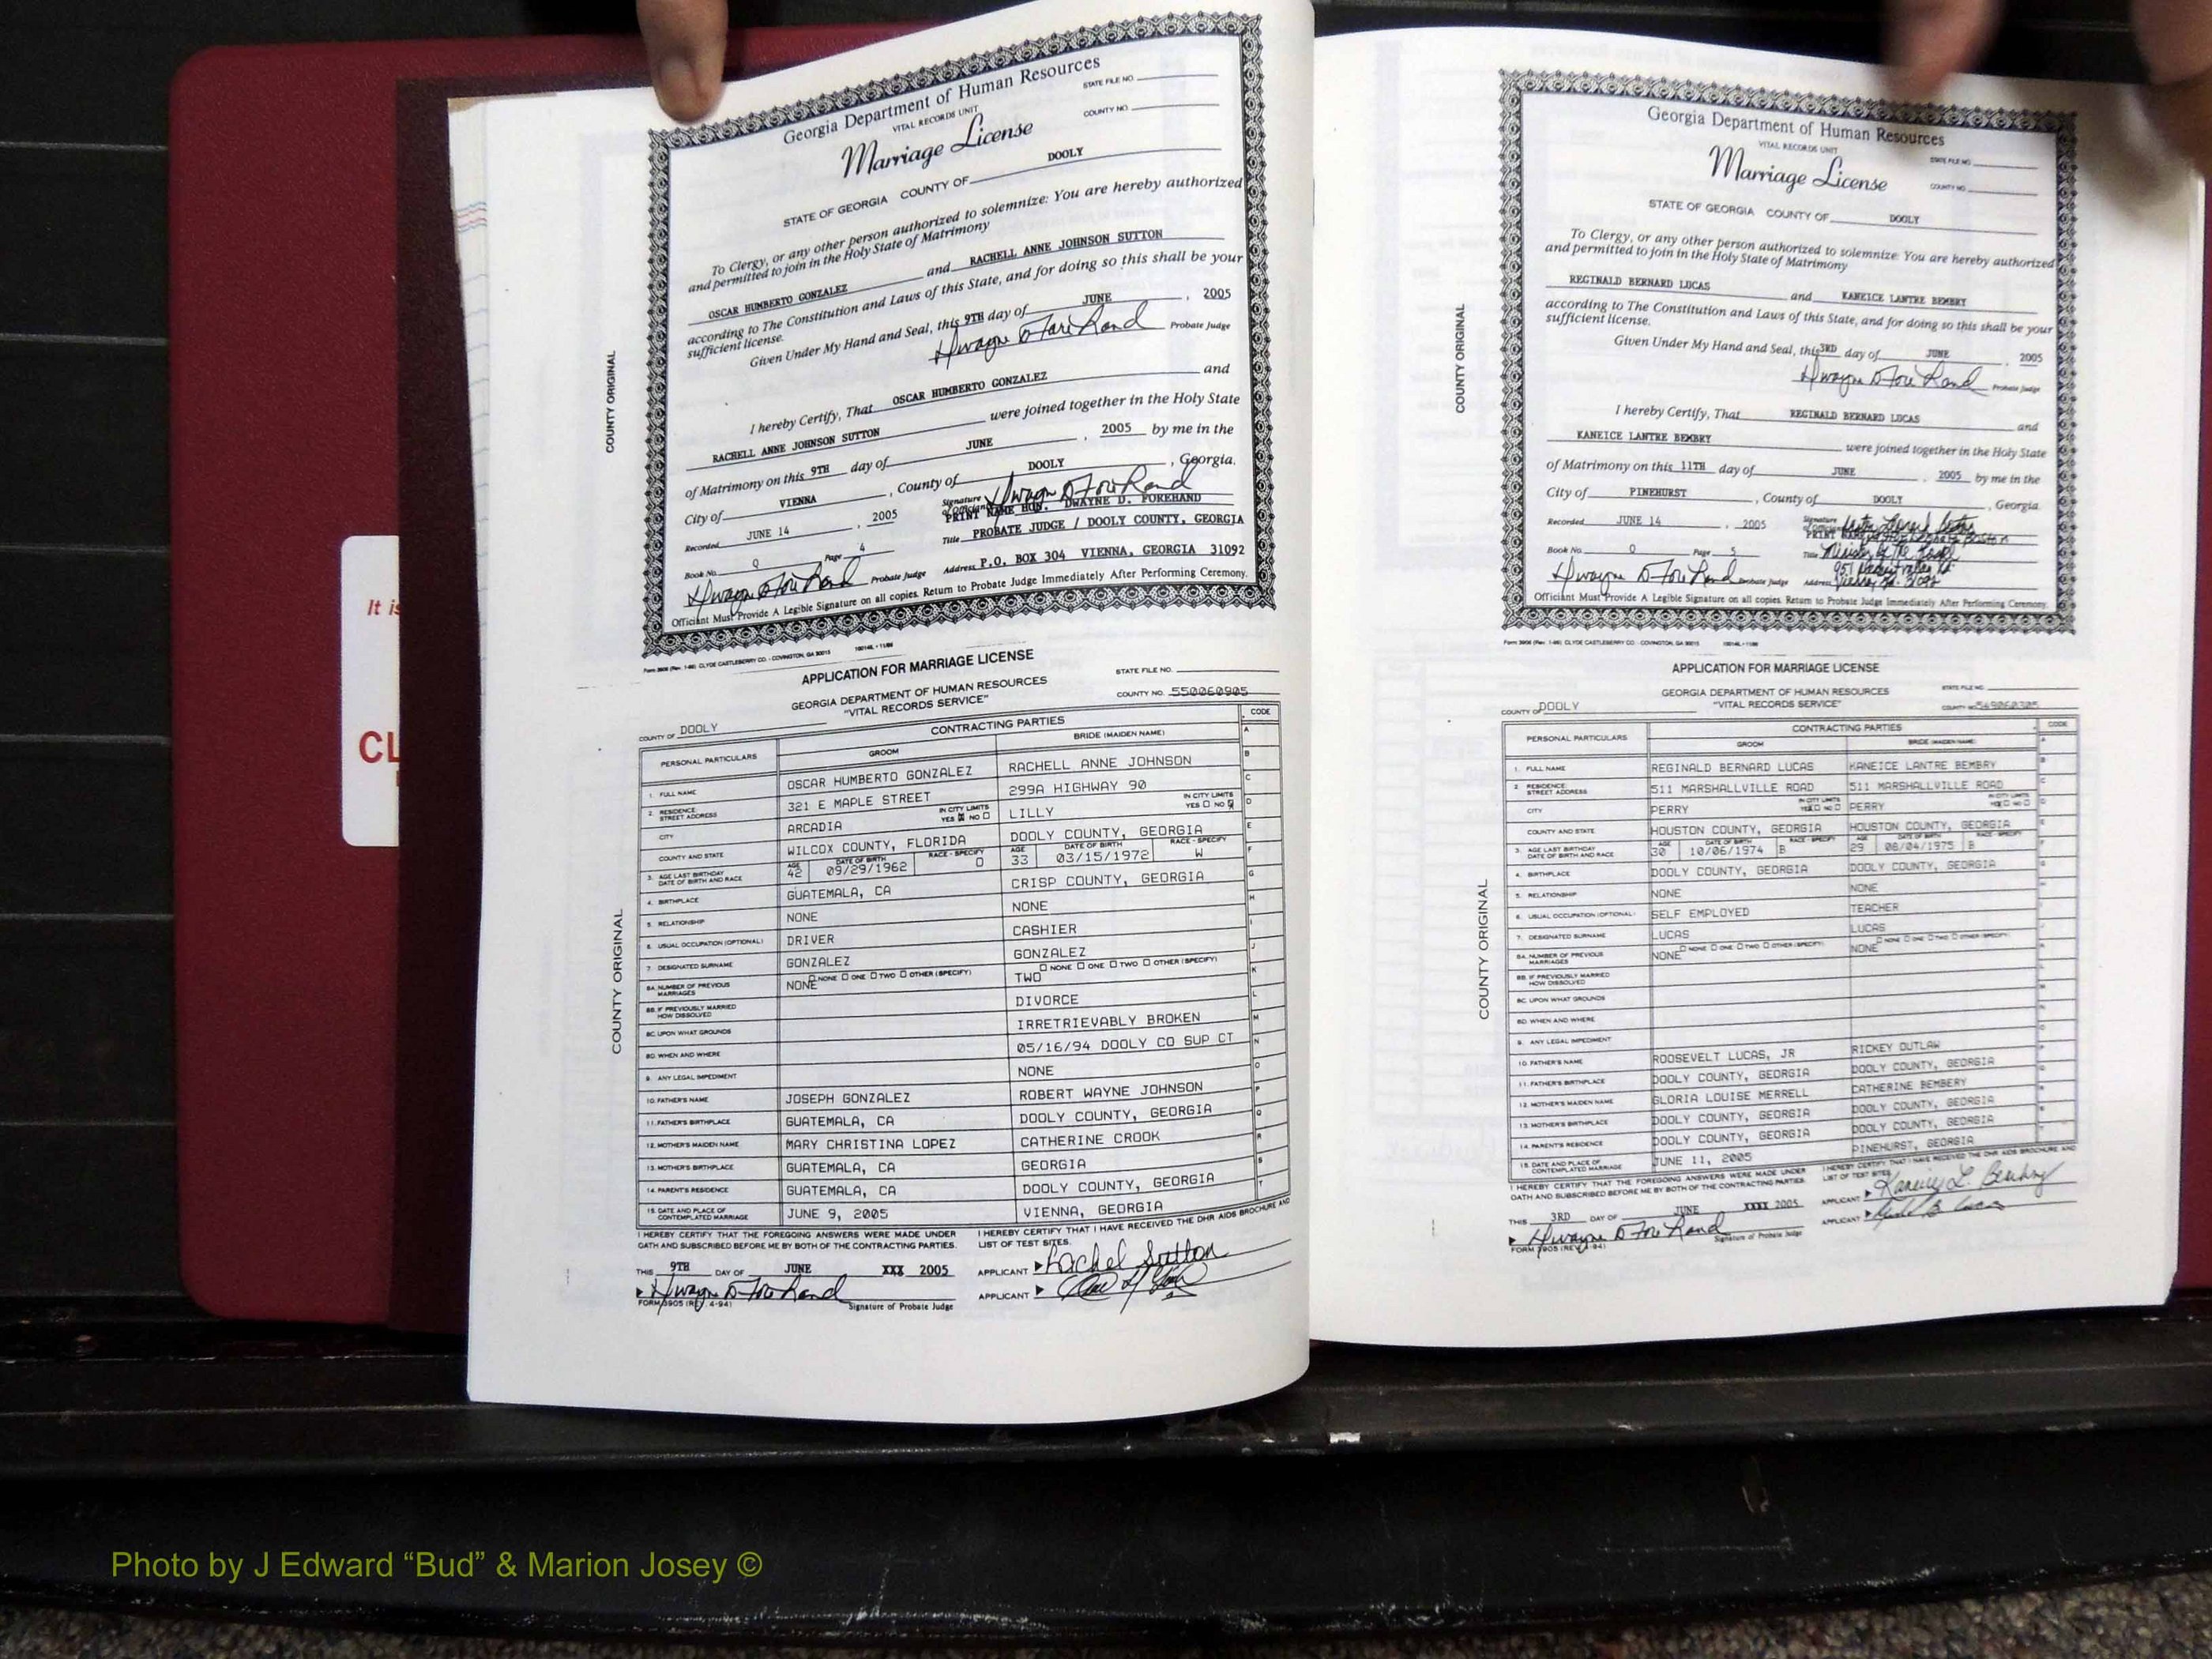 It is
CL
COUNTY ORIGINAL
Georgia Department of Human Resources
VITAL RECORDS UNIT
STATE FILE NO.
Marriage License
COUNTY NO.
STATE OF GEORGIA COUNTY OF DOOLY
To Clergy, or any other person authorized to solemnize: You are hereby authorized
and permitted to join in the Holy State of Matrimony
OSCAR HUMBERTO GONZALEZ and RACHELL ANNE JOHNSON SUTTON
according to The Constitution and Laws of this State, and for doing so this shall be your
sufficient license.
Given Under My Hand and Seal, this 9TH day of JUNE, 2005
Probate Judge
I hereby Certify, That OSCAR HUMBERTO GONZALEZ and
RACHELL ANNE JOHNSON SUTTON were joined together in the Holy State
of Matrimony on this 9TH day of JUNE, 2005 by me in the
City of VIENNA, County of DOOLY, Georgia.
Signature of Officiant
Recorded JUNE 14, 2005 PRINT NAME HON. DWAYNE D. FOREHAND
Title PROBATE JUDGE / DOOLY COUNTY, GEORGIA
Book No. Q Page 4 Address P.O. BOX 304 VIENNA, GEORGIA 31092
Probate Judge
Officiant Must Provide A Legible Signature on all copies. Return to Probate Judge Immediately After Performing Ceremony.
Form 3906 (Rev. 1-95) CLYDE CASTLEBERRY CO. - COVINGTON, GA 30015
APPLICATION FOR MARRIAGE LICENSE
GEORGIA DEPARTMENT OF HUMAN RESOURCES
"VITAL RECORDS SERVICE"
STATE FILE NO.
COUNTY NO. 550060905
COUNTY OF DOOLY
COUNTY ORIGINAL
PERSONAL PARTICULARS CONTRACTING PARTIES CODE
GROOM BRIDE (MAIDEN NAME)
1. FULL NAME OSCAR HUMBERTO GONZALEZ RACHELL ANNE JOHNSON
2. RESIDENCE: STREET ADDRESS 321 E MAPLE STREET 299A HIGHWAY 90
CITY ARCADIA IN CITY LIMITS YES NO LILLY IN CITY LIMITS YES NO
COUNTY AND STATE WILCOX COUNTY, FLORIDA DOOLY COUNTY, GEORGIA
3. AGE LAST BIRTHDAY DATE OF BIRTH AND RACE AGE 42 DATE OF BIRTH 09/29/1962 RACE - SPECIFY O AGE 33 DATE OF BIRTH 03/15/1972 RACE - SPECIFY W
4. BIRTHPLACE GUATEMALA, CA CRISP COUNTY, GEORGIA
5. RELATIONSHIP NONE NONE
6. USUAL OCCUPATION (OPTIONAL) DRIVER CASHIER
7. DESIGNATED SURNAME GONZALEZ GONZALEZ
8A. NUMBER OF PREVIOUS MARRIAGES NONE NONE ONE TWO OTHER (SPECIFY) TWO NONE ONE TWO OTHER (SPECIFY)
8B. IF PREVIOUSLY MARRIED HOW DISSOLVED DIVORCE
8C. UPON WHAT GROUNDS IRRETRIEVABLY BROKEN
8D. WHEN AND WHERE 05/16/94 DOOLY CO SUP CT
9. ANY LEGAL IMPEDIMENT NONE
10. FATHER'S NAME JOSEPH GONZALEZ ROBERT WAYNE JOHNSON
11. FATHER'S BIRTHPLACE GUATEMALA, CA DOOLY COUNTY, GEORGIA
12. MOTHER'S MAIDEN NAME MARY CHRISTINA LOPEZ CATHERINE CROOK
13. MOTHER'S BIRTHPLACE GUATEMALA, CA GEORGIA
14. PARENT'S RESIDENCE GUATEMALA, CA DOOLY COUNTY, GEORGIA
15. DATE AND PLACE OF CONTEMPLATED MARRIAGE JUNE 9, 2005 VIENNA, GEORGIA
I HEREBY CERTIFY THAT THE FOREGOING ANSWERS WERE MADE UNDER
OATH AND SUBSCRIBED BEFORE ME BY BOTH OF THE CONTRACTING PARTIES.
I HEREBY CERTIFY THAT I HAVE RECEIVED THE DHR AIDS BROCHURE AND
LIST OF TEST SITES.
THIS 9TH DAY OF JUNE XXX 2005
APPLICANT Rachel Sutton
APPLICANT
FORM 3905 (REV. 4-94) Signature of Probate Judge
COUNTY ORIGINAL
Georgia Department of Human Resources
VITAL RECORDS UNIT
STATE FILE NO.
Marriage License
COUNTY NO.
STATE OF GEORGIA COUNTY OF DOOLY
To Clergy, or any other person authorized to solemnize: You are hereby authorized
and permitted to join in the Holy State of Matrimony
REGINALD BERNARD LUCAS and KANEICE LANTRE BEMBRY
according to The Constitution and Laws of this State, and for doing so this shall be your
sufficient license.
Given Under My Hand and Seal, this 3RD day of JUNE, 2005
Probate Judge
I hereby Certify, That REGINALD BERNARD LUCAS and
KANEICE LANTRE BEMBRY were joined together in the Holy State
of Matrimony on this 11TH day of JUNE, 2005 by me in the
City of PINEHURST, County of DOOLY, Georgia.
Recorded JUNE 14, 2005 Signature of Officiant
PRINT NAME
Book No. Q Page 5 Title Minister of the Gospel
Probate Judge Address Vienna, Ga. 31092
Officiant Must Provide A Legible Signature on all copies. Return to Probate Judge Immediately After Performing Ceremony.
Form 3906 (Rev. 1-95) CLYDE CASTLEBERRY CO. - COVINGTON, GA 30015
APPLICATION FOR MARRIAGE LICENSE
GEORGIA DEPARTMENT OF HUMAN RESOURCES
"VITAL RECORDS SERVICE"
STATE FILE NO.
COUNTY NO.
COUNTY OF DOOLY
COUNTY ORIGINAL
PERSONAL PARTICULARS CONTRACTING PARTIES CODE
GROOM BRIDE (MAIDEN NAME)
1. FULL NAME REGINALD BERNARD LUCAS KANEICE LANTRE BEMBRY
2. RESIDENCE: STREET ADDRESS 511 MARSHALLVILLE ROAD 511 MARSHALLVILLE ROAD
CITY PERRY IN CITY LIMITS YES NO PERRY IN CITY LIMITS YES NO
COUNTY AND STATE HOUSTON COUNTY, GEORGIA HOUSTON COUNTY, GEORGIA
3. AGE LAST BIRTHDAY DATE OF BIRTH AND RACE AGE 30 DATE OF BIRTH 10/06/1974 RACE - SPECIFY B AGE 29 DATE OF BIRTH 08/04/1975 RACE - SPECIFY B
4. BIRTHPLACE DOOLY COUNTY, GEORGIA DOOLY COUNTY, GEORGIA
5. RELATIONSHIP NONE NONE
6. USUAL OCCUPATION (OPTIONAL) SELF EMPLOYED TEACHER
7. DESIGNATED SURNAME LUCAS LUCAS
8A. NUMBER OF PREVIOUS MARRIAGES NONE NONE ONE TWO OTHER (SPECIFY) NONE NONE ONE TWO OTHER (SPECIFY)
8B. IF PREVIOUSLY MARRIED HOW DISSOLVED
8C. UPON WHAT GROUNDS
8D. WHEN AND WHERE
9. ANY LEGAL IMPEDIMENT
10. FATHER'S NAME ROOSEVELT LUCAS, JR RICKEY OUTLAW
11. FATHER'S BIRTHPLACE DOOLY COUNTY, GEORGIA DOOLY COUNTY, GEORGIA
12. MOTHER'S MAIDEN NAME GLORIA LOUISE MERRELL CATHERINE BEMBERY
13. MOTHER'S BIRTHPLACE DOOLY COUNTY, GEORGIA DOOLY COUNTY, GEORGIA
14. PARENT'S RESIDENCE DOOLY COUNTY, GEORGIA DOOLY COUNTY, GEORGIA
15. DATE AND PLACE OF CONTEMPLATED MARRIAGE JUNE 11, 2005 PINEHURST, GEORGIA
I HEREBY CERTIFY THAT THE FOREGOING ANSWERS WERE MADE UNDER
OATH AND SUBSCRIBED BEFORE ME BY BOTH OF THE CONTRACTING PARTIES.
I HEREBY CERTIFY THAT I HAVE RECEIVED THE DHR AIDS BROCHURE AND
LIST OF TEST SITES.
THIS 3RD DAY OF JUNE XXXX 2005
APPLICANT
APPLICANT
FORM 3905 (REV. 4-94) Signature of Probate Judge
Photo by J Edward “Bud” & Marion Josey ©